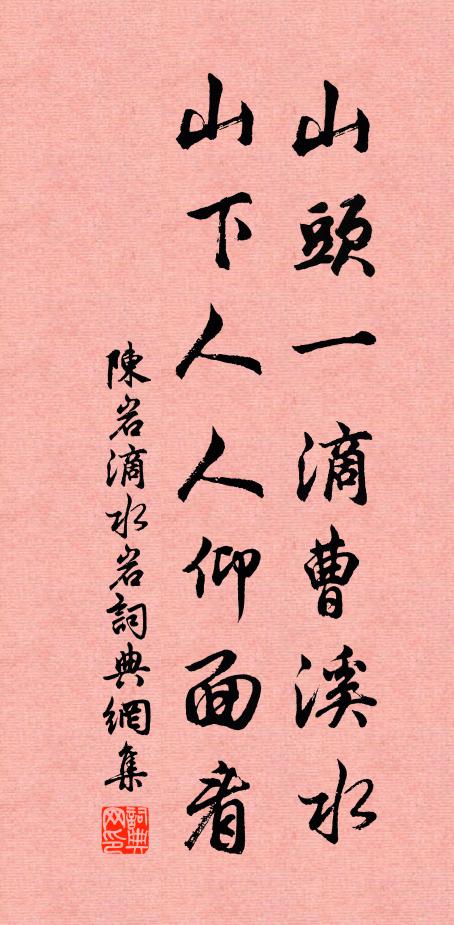 山頭一滴曹溪水
山下人人仰面看
陳岩滴水岩詞典網集
詞典
网印